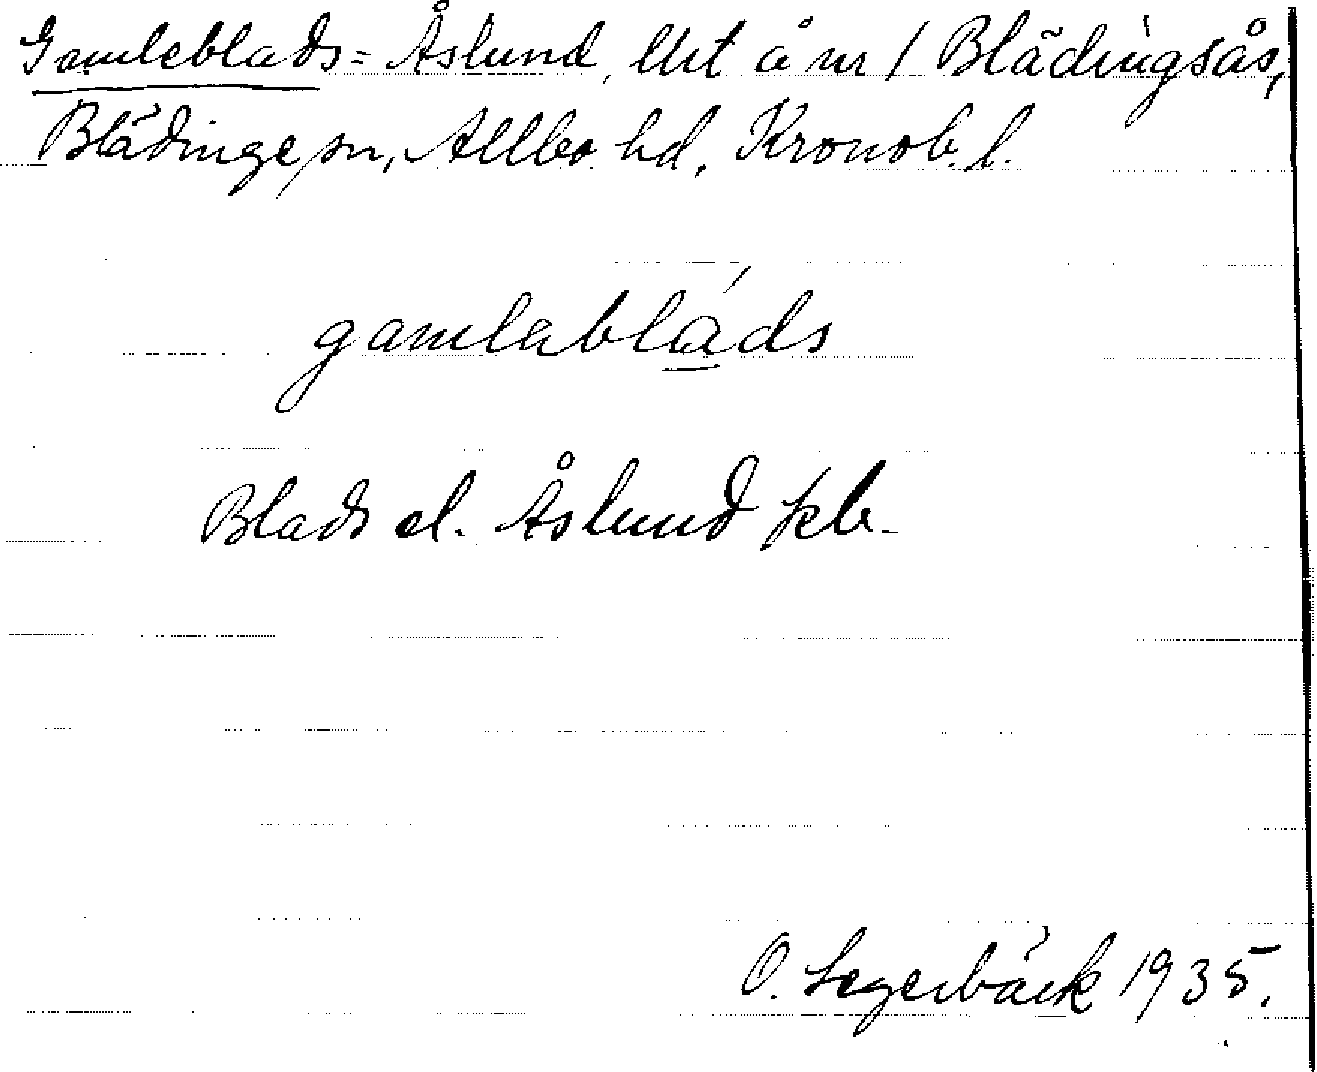 Gamleblads = Åslund, lht å nr 1 Blädingsås,
Blädinge sn, Allbo hd, Kronob. l.
gamlabláds
Blads el. Åslund kb.
O. Segerbäck 1935.